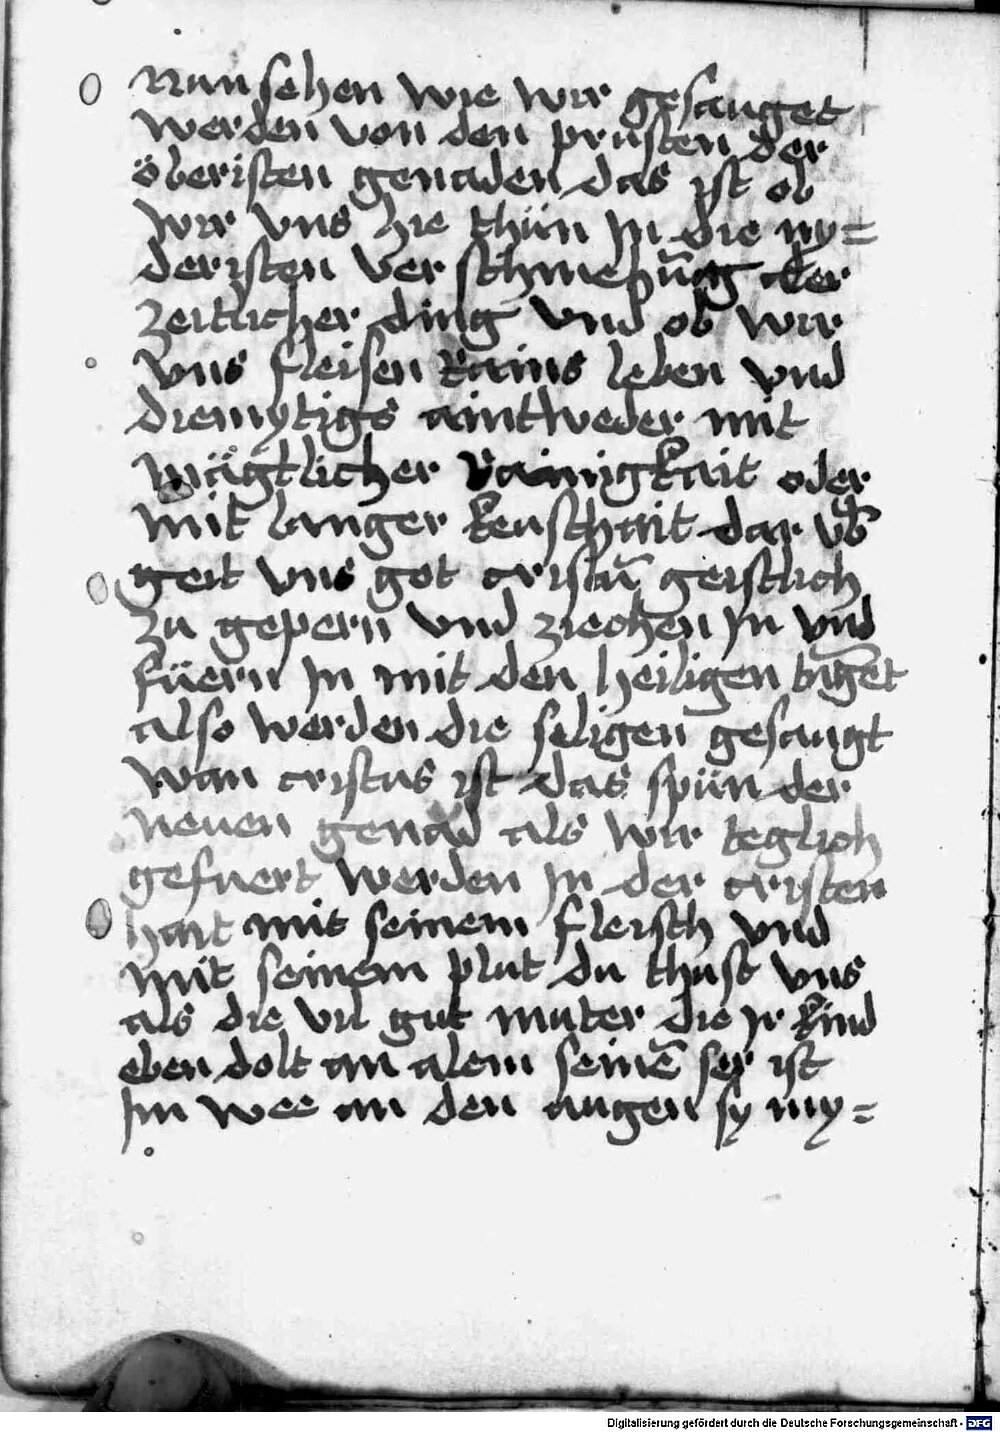 Nun sehen wie wir gesauget
werden von den prüsten der
öberisten genaden das ist ob
wir vns hie thün Jn die ny=
deristen ver schmehūg der
zeitlicher ding vnd ob wir
vns fleisen Rains leben vnd
diemytigs aintweder mit
mägtlicher Rainigkait oder
mit langer keuschait dar vb̄
geit vns got cristū geistlich
zu gepern vnd ziechen Jn vnd
füern Jn mit den heiligen tugēt
also werden die seligen gesaugt
wan cristus ist das spün der
neuen genad als wir teglich
gefuert werden Jn der cristen
hait mit seinem fleisch vnd
mit seinem plut du thust vns
als die vil gut muter die Jr kind
eben dolt an alem seinē ser ist
Jm wee an den augen sy my=
Digitalisierung gefördert durch die Deutsche Forschungsgemeinschaft - DFG